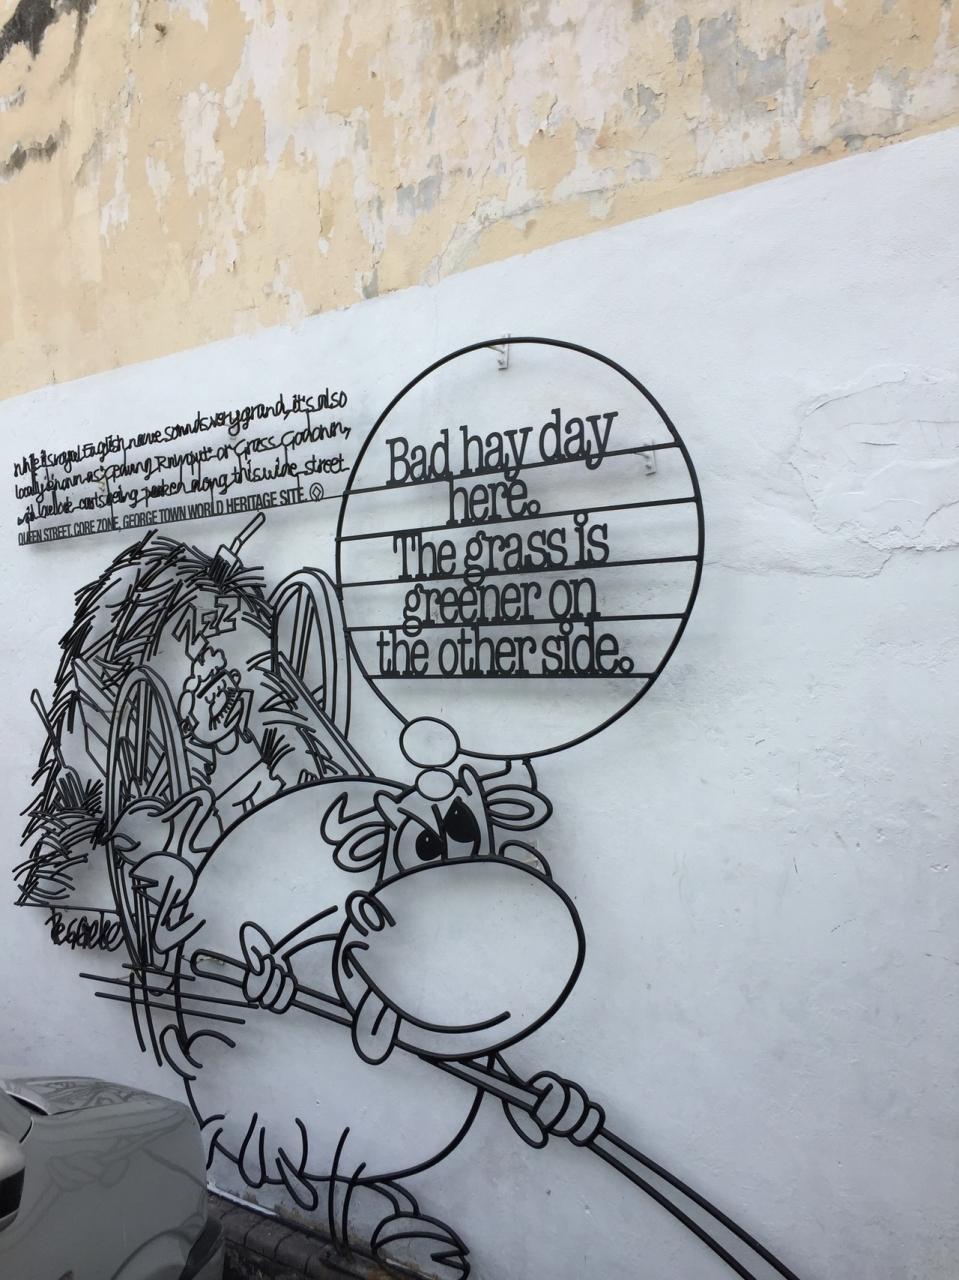 While its royal English name sounds very grand, it's also
locally known as "Gedung Rumput" or Grass Godown,
with bullock-carts being parked along this wide street
QUEEN STREET, CORE ZONE, GEORGE TOWN WORLD HERITAGE SITE.
Bad hay day
here.
The grass is
greener on
the other side.
ZZZ